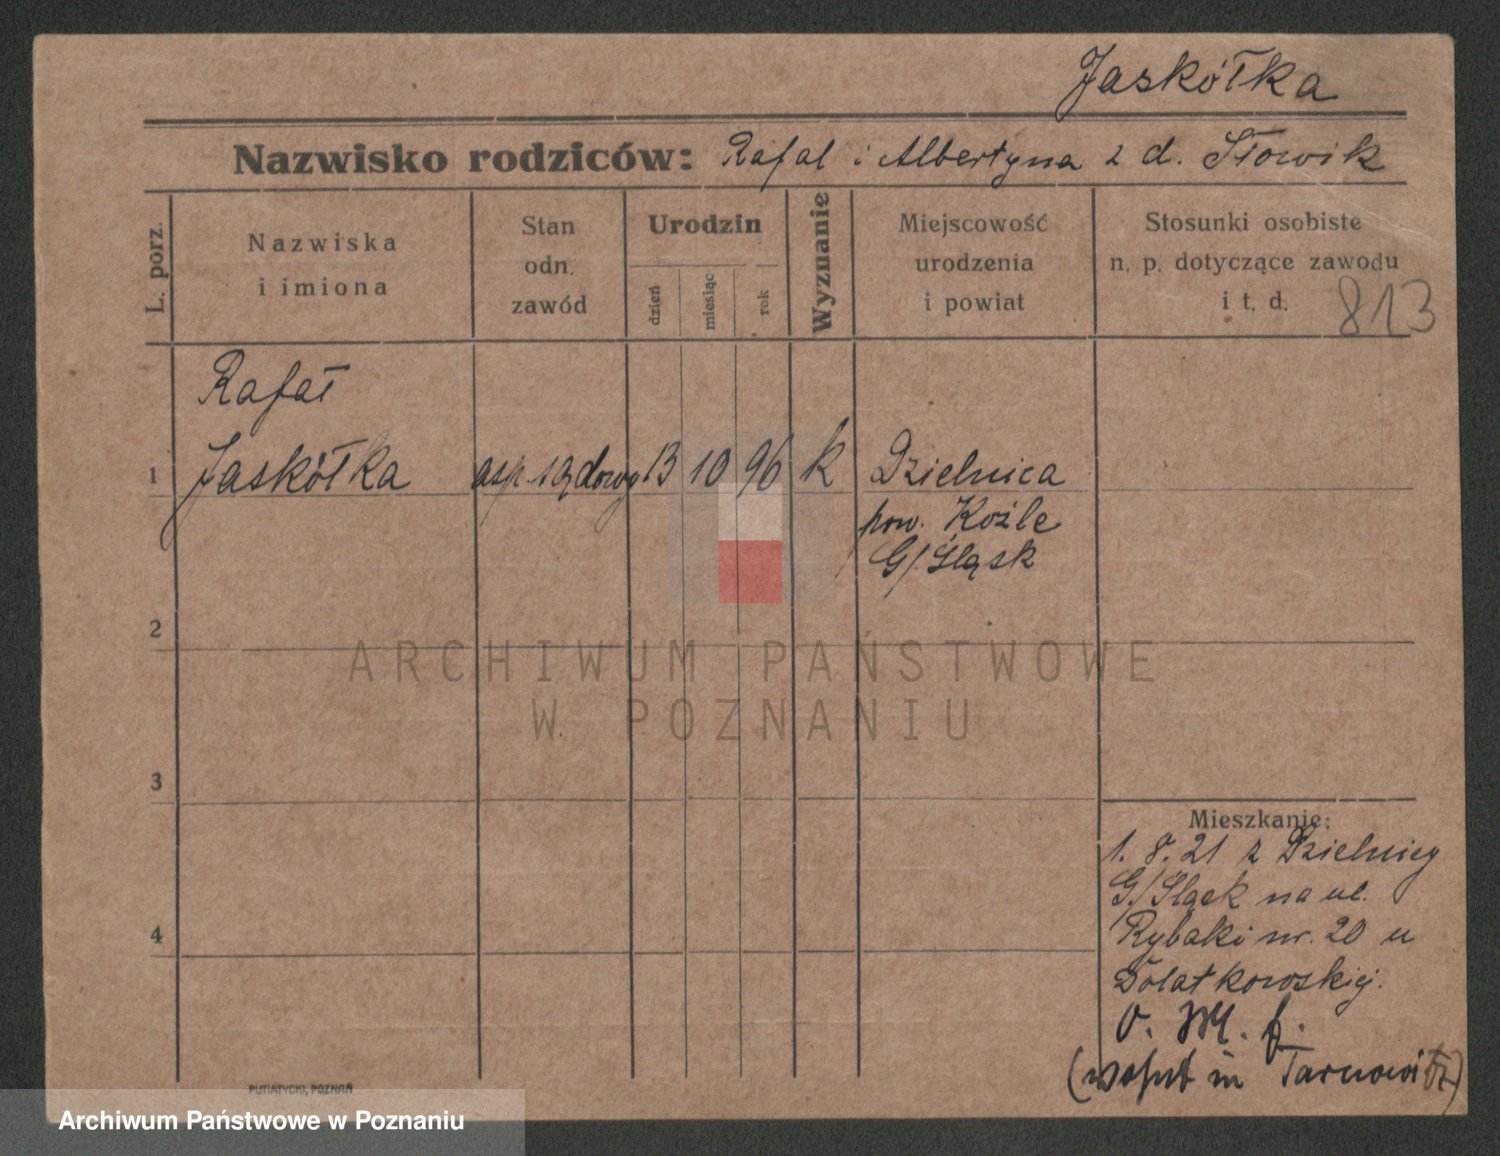 Jaskółka
Nazwisko rodziców: Rafal i Albertyna z d. Słowik
L. porz.
Nazwiska
i imiona
Stan
odn.
zawód
Urodzin
dzień
miesiąc
rok
Wyznanie
Miejscowość
urodzenia
i powiat
Stosunki osobiste
n. p. dotyczące zawodu
i t. d.
813
Rafał
1 Jaskółka asp. sądowy 13 10 96 k Dzielnica
pow. Koźle
G/Śląsk
2
3
4
Mieszkanie:
1. 8. 21 z Dzielnicy
G/Śląsk na ul.
Rybaki nr. 20 u
Dolatkowskiej.
(wohnt in Tarnowitz)
PUTIATYCKI, POZNAŃ
ARCHIWUM PAŃSTWOWE
W POZNANIU
Archiwum Państwowe w Poznaniu